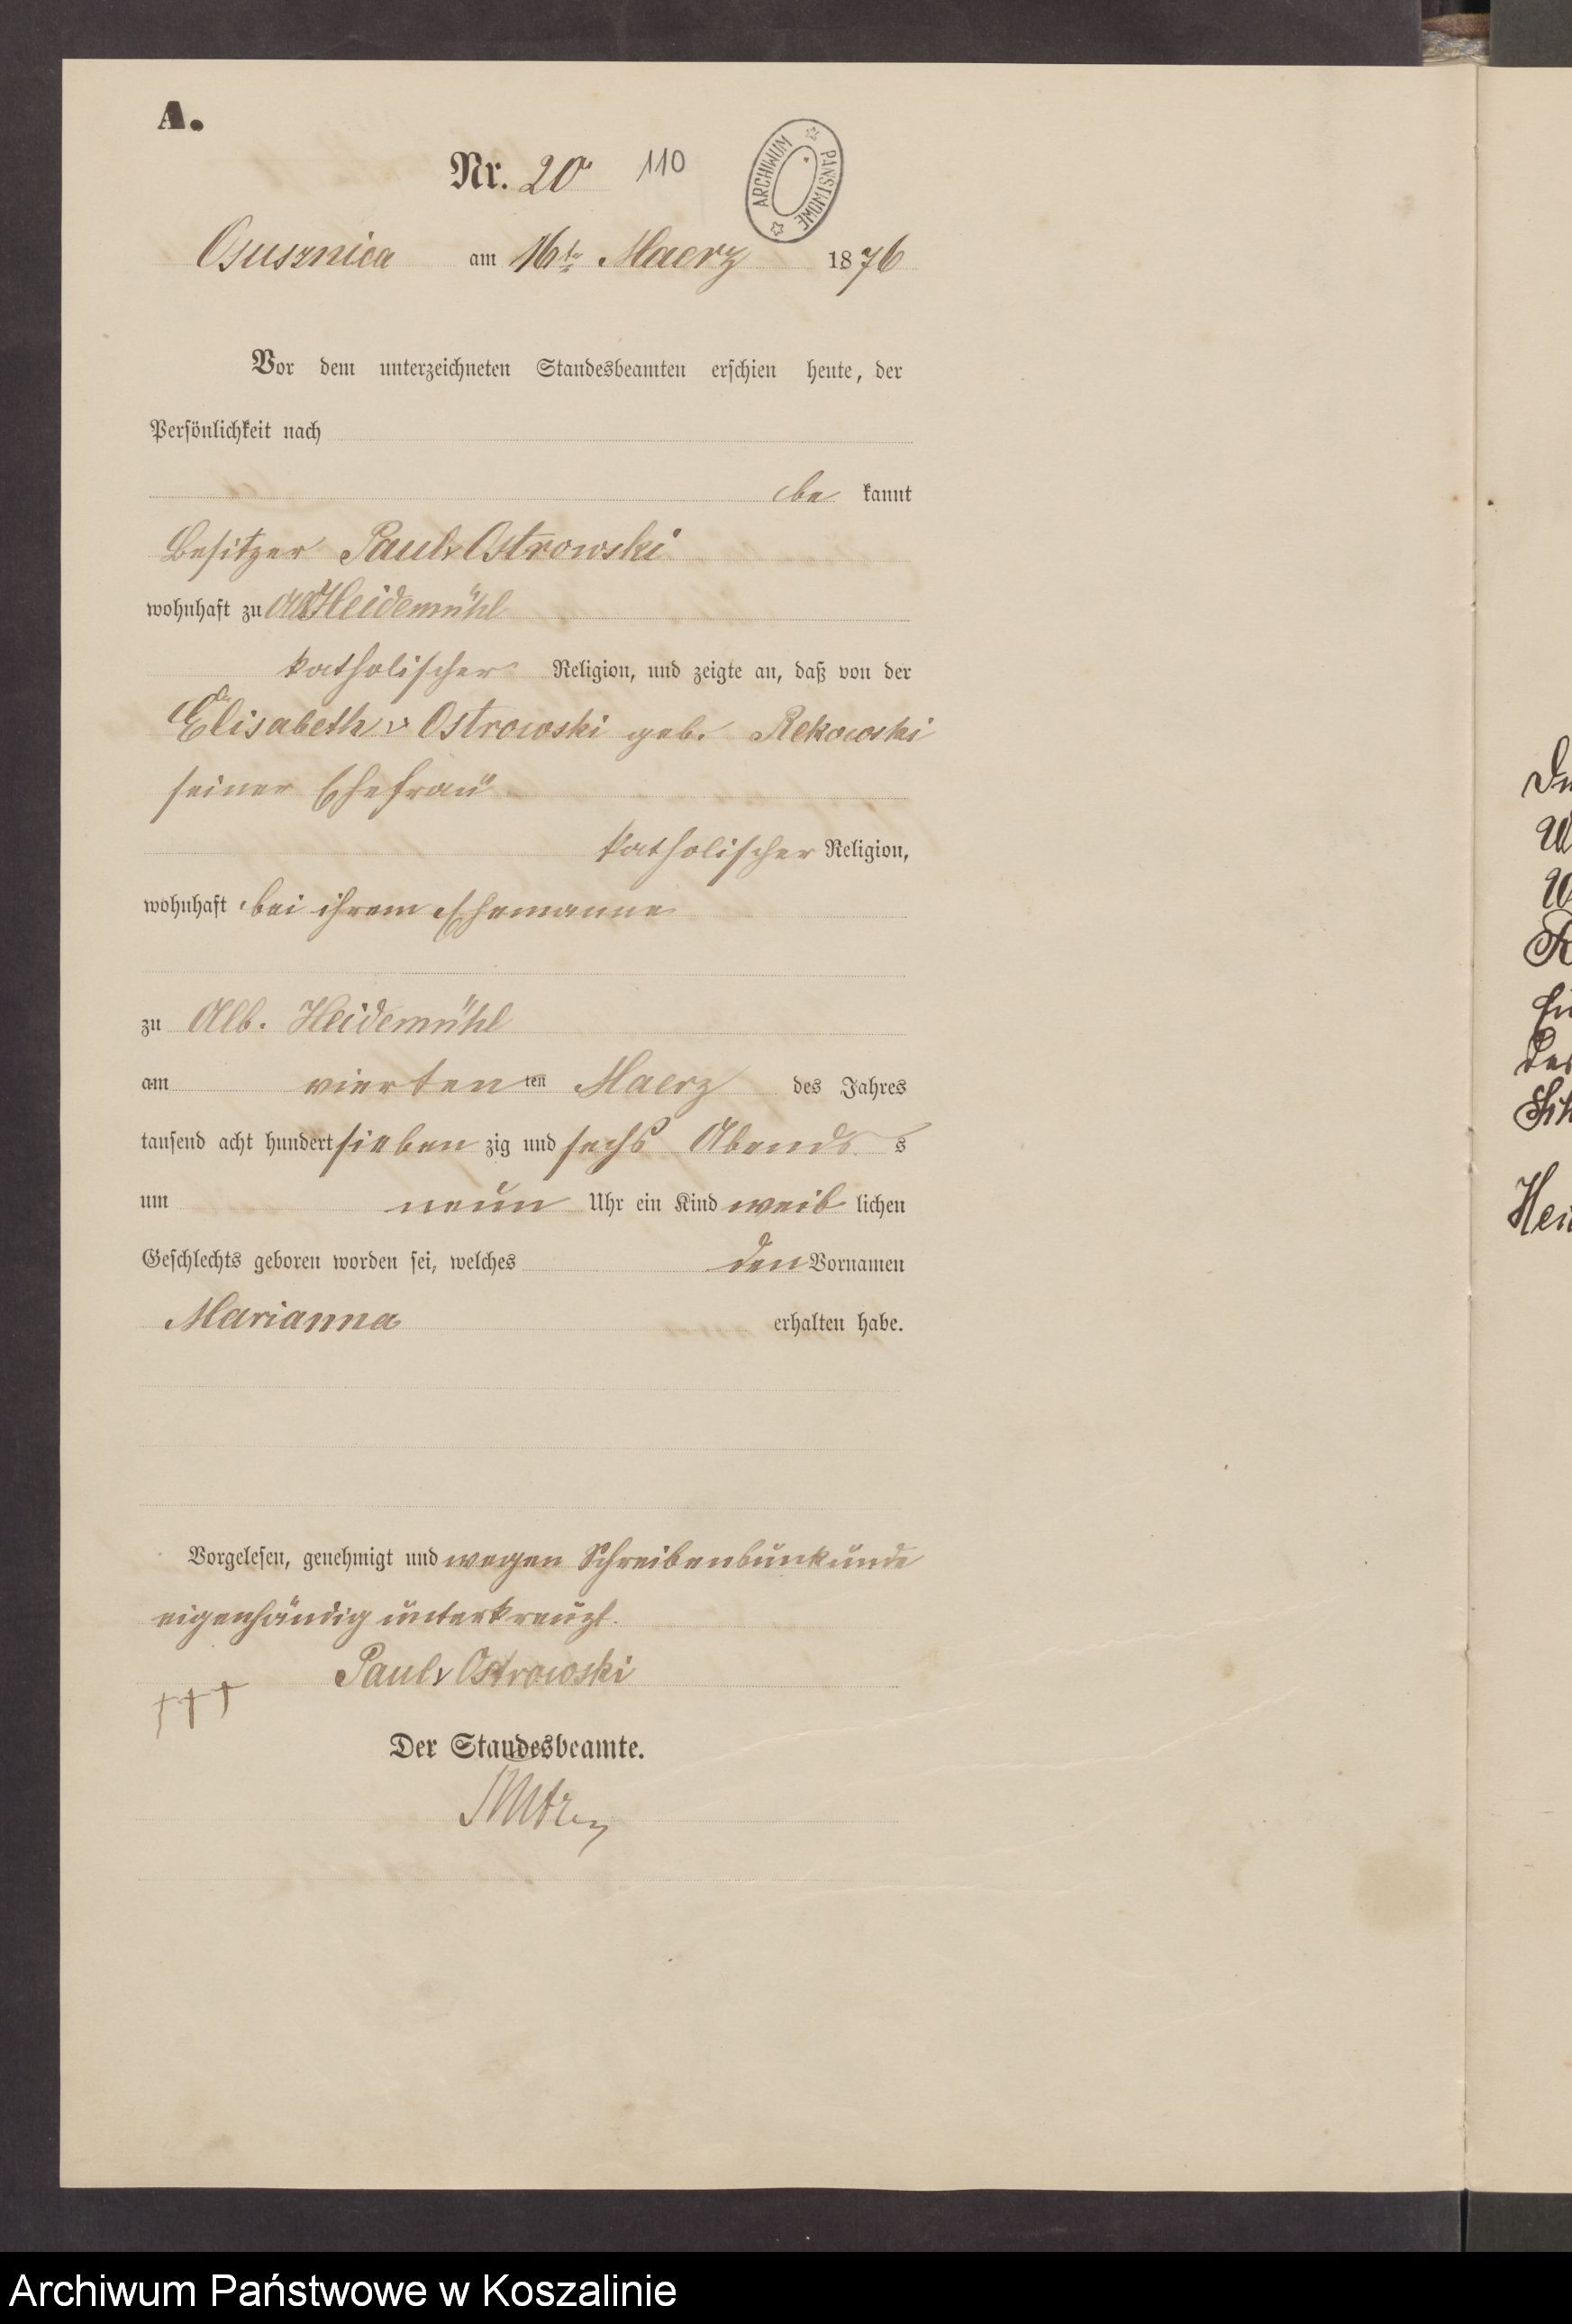 A.
Nr. 20 110
ARCHIWUM PAŃSTWOWE
Osusznica am 16te Maerz 1876
Vor dem unterzeichneten Standesbeamten erschien heute, der
Persönlichkeit nach
be kannt
Besitzer Paul v Ostrowski
wohnhaft zu Alb Heidemühl
katholischer Religion, und zeigte an, daß von der
Elisabeth v Ostrowski geb. Rekowski
seiner Ehefrau
katholischer Religion,
wohnhaft bei ihrem Ehemanne
zu Alb. Heidemühl
am vierten ten Maerz des Jahres
tausend acht hundert sieben zig und sechs Abends s
um neun Uhr ein Kind weib lichen
Geschlechts geboren worden sei, welches den Vornamen
Marianna erhalten habe.
Vorgelesen, genehmigt und wegen Schreibenbunkunde
eigenhändig unterkreuzt.
Paul v Ostrowski
†††
Der Standesbeamte.
Hei
Archiwum Państwowe w Koszalinie